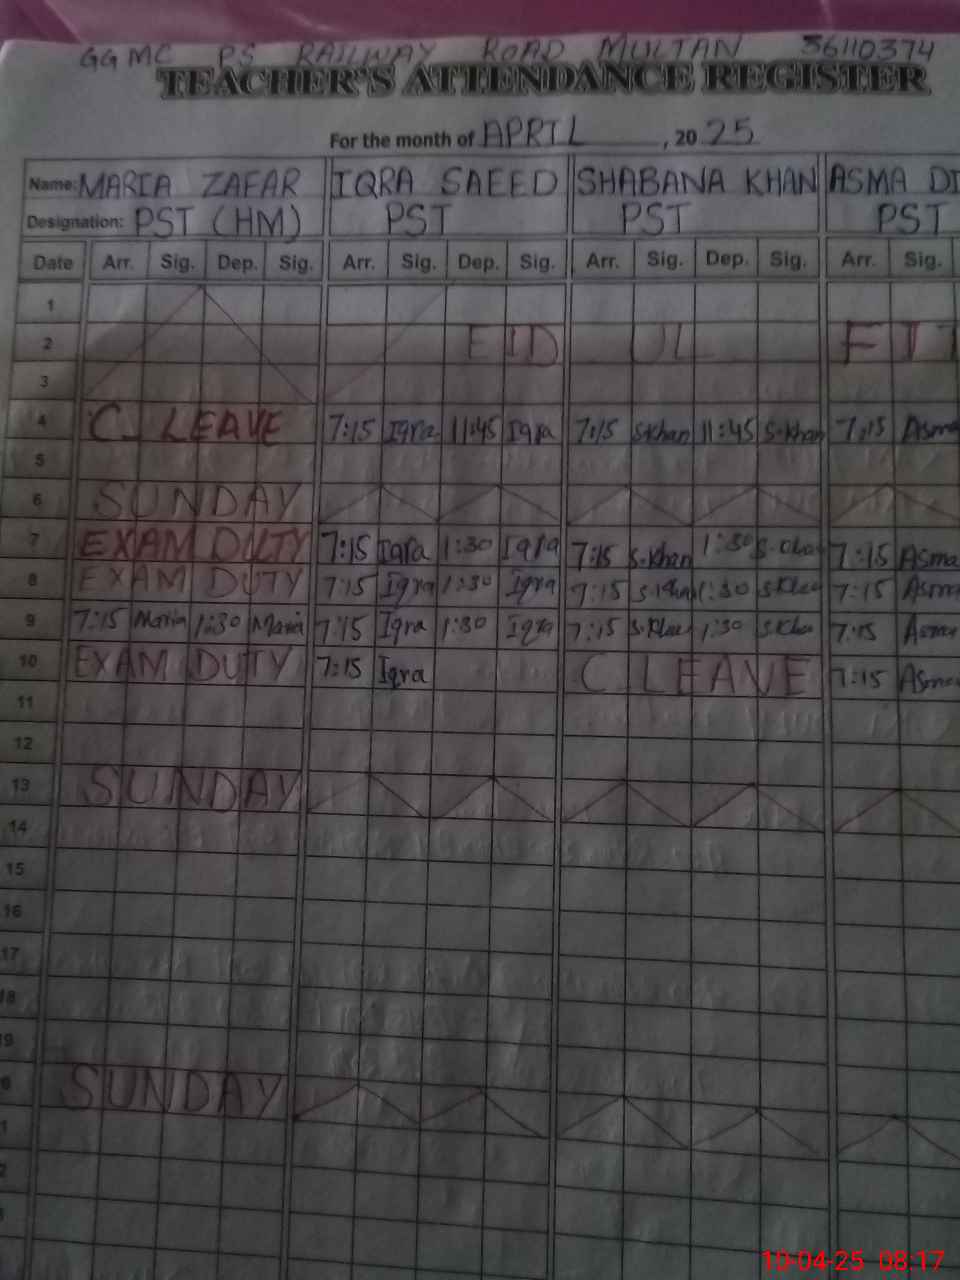 GGMC PS RAILWAY ROAD MULTAN 36110374
TEACHER'S ATTENDANCE REGISTER
For the month of APRIL, 2025
Name: MARIA ZAFAR IQRA SAEED SHABANA KHAN ASMA
Designation: PST (HM) PST PST PST
Date Arr. Sig. Dep. Sig. Arr. Sig. Dep. Sig. Arr. Sig. Dep. Sig. Arr. Sig.
1
2 EID UL
3
4 C LEAVE 7:15 Iqra 11:45 Iqra 7:15 S.Khan 11:45 S.Khan 7:15 Asma
5
6 SUNDAY
7 EXAM DUTY 7:15 Iqra 1:30 Iqra 7:15 S.Khan 1:30 7:15 Asma
8 EXAM DUTY 7:15 Iqra 1:30 Iqra 7:15 S.Khan 1:30 7:15 Asma
9 7:15 Maria 1:30 Maria 7:15 Iqra 1:30 Iqra 7:15 1:30 7:15 Asma
10 EXAM DUTY 7:15 Iqra C LEAVE 7:15 Asma
11
12
13 SUNDAY
14
15
16
17
18
19
SUNDAY
10-04-25 08:17